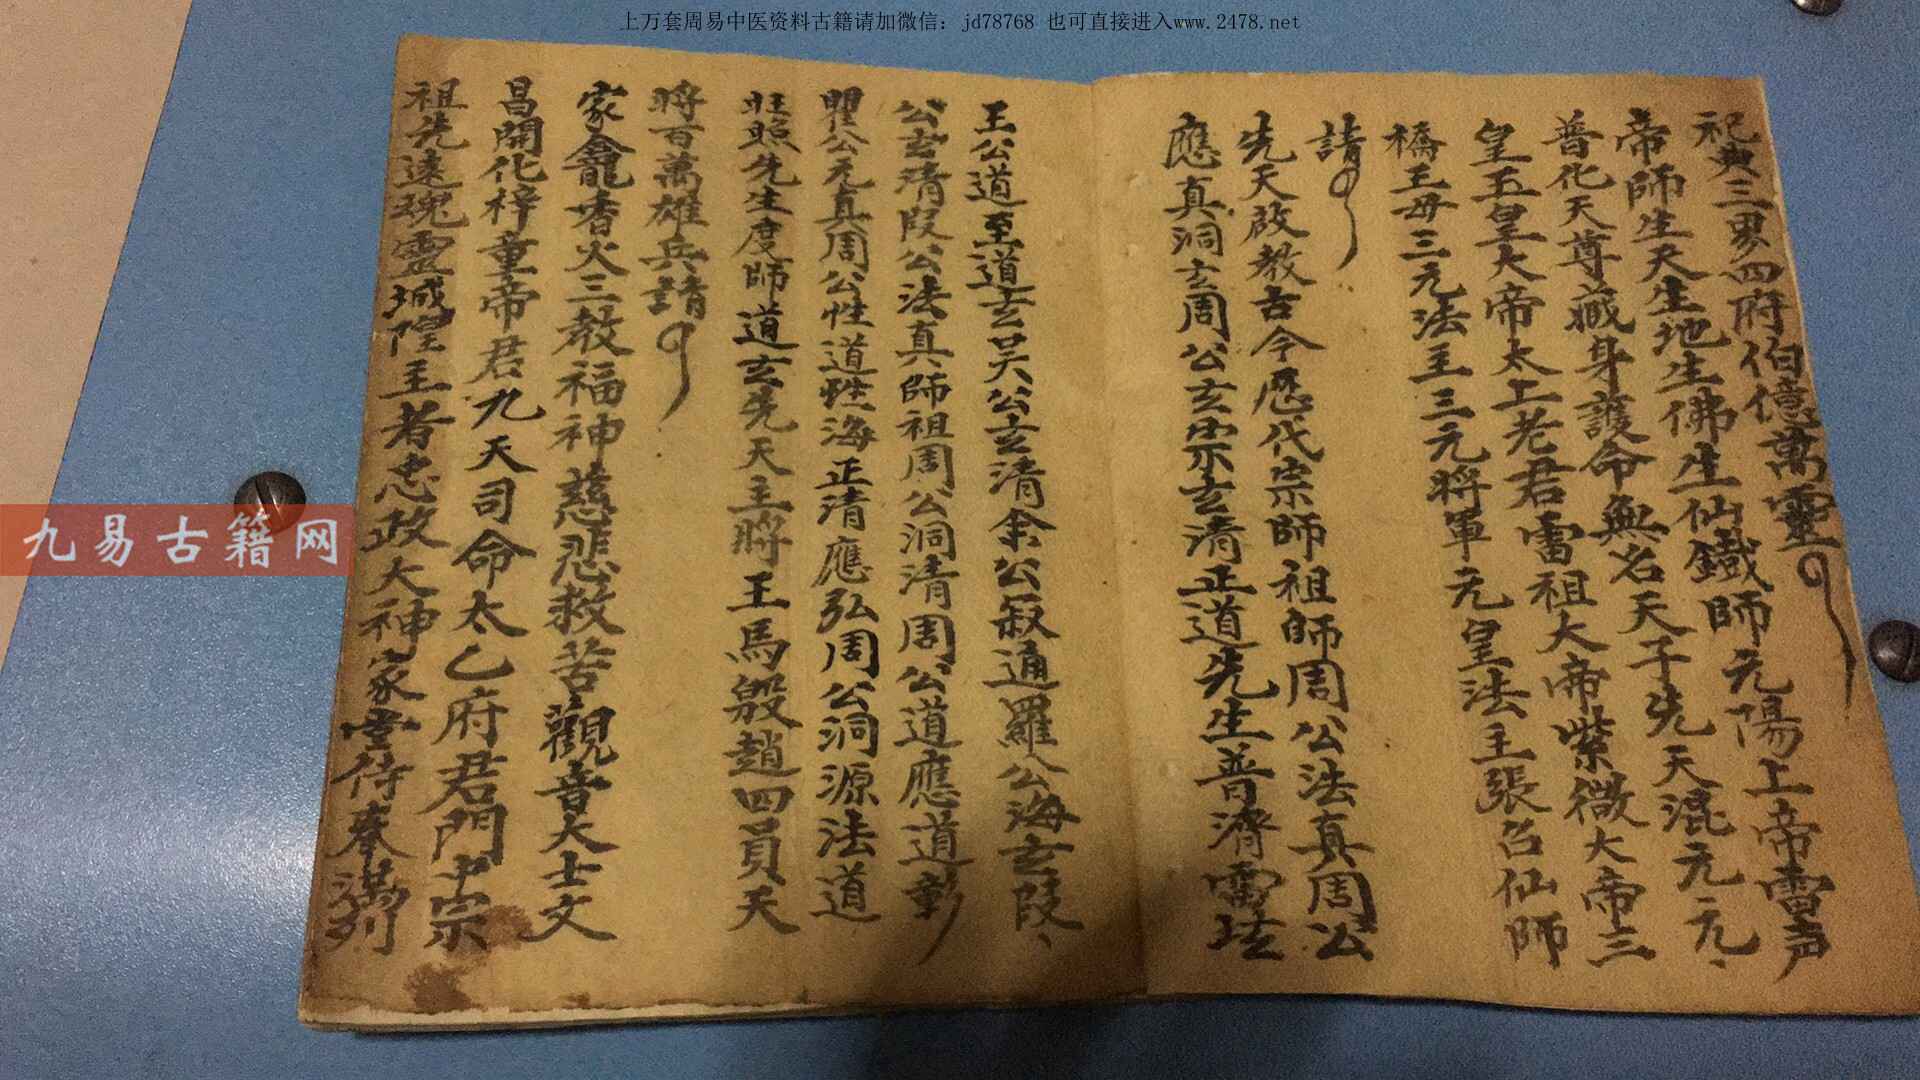 上万套周易中医资料古籍请加微信：jd78768 也可直接进入www.2478.net
祀典三界四府伯億萬靈
帝師生天生地生佛生仙鐵師元陽上帝雷声
普化天尊藏身護命無名天子先天混元元、
皇五皇大帝太上老君雷祖大帝紫微大帝三
橋王母三元法主三元將軍元皇法王張召仙師
請
先天啟教古今歷代宗師祖師周公法真周公
應真洞玄周公玄宗玄清正道先生普濟雷坛
王公道至道玄吴公玄清余公寂通羅公海玄段、
公玄清段公法真師祖周公洞清周公道應道彰
瞿公元真周公性道性海正清應弘周公洞源法道
旺照先生度師道玄先天主將王馬殷趙四員天
將百萬雄兵請
家龕香火三教福神慈悲救苦觀音大士文
昌開化梓童帝君九天司命太乙府君門中宗
祖先遠魂靈城隍王者忠政大神家堂侍奉满列
九易古籍网